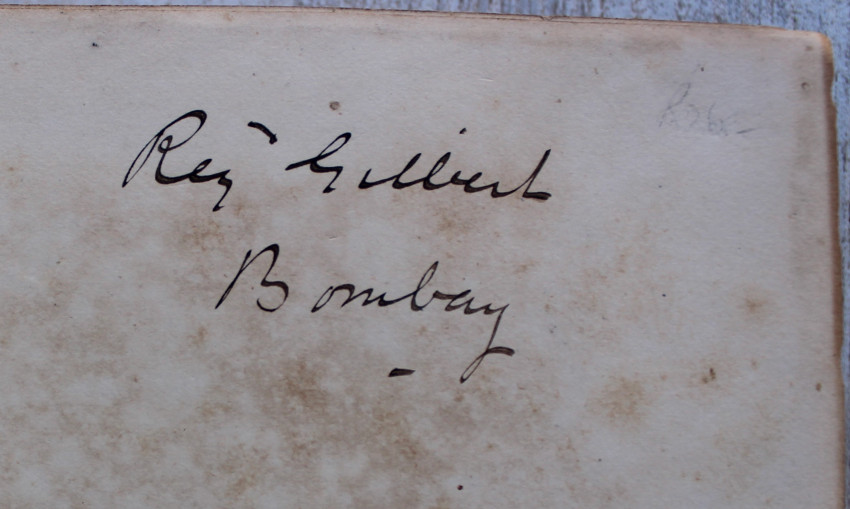 Reg Gilbert
Bombay